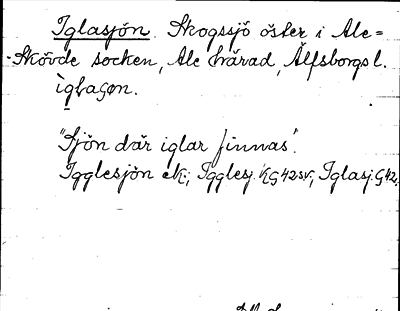 Iglasjön. Skogssjö öster i Ale=
-Skövde socken, Ale härad, Älfsborgs l.
ìglaგon.
"Sjön där iglar finnas".
Igglesjön ek.; Igglesj. KG42sv; Iglasj. G42.